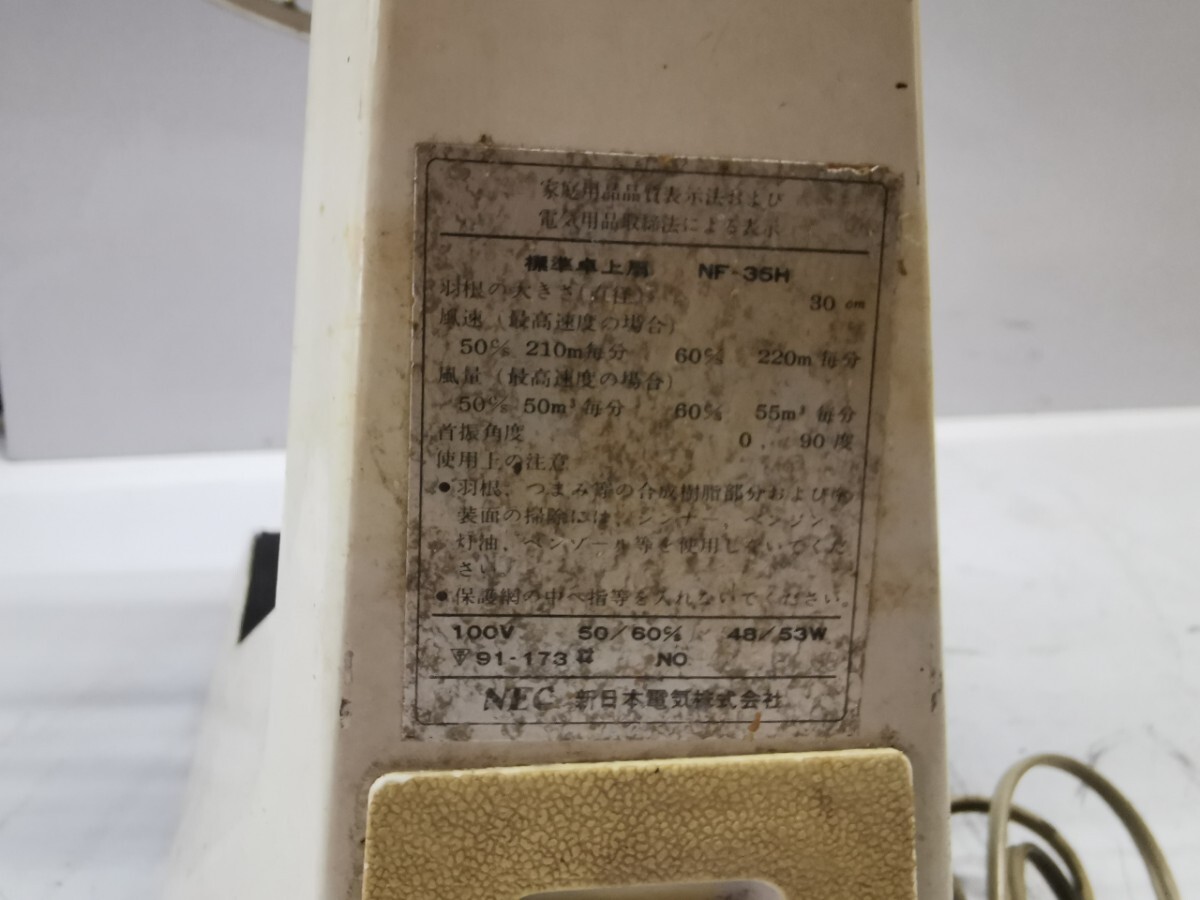 家庭用品品質表示法および
電気用品取締法による表示
標準卓上扇 NF-35H
羽根の大きさ(直径) 30 cm
風速(最高速度の場合)
50% 210m毎分 60% 220m毎分
風量(最高速度の場合)
50% 50m³毎分 60% 55m³毎分
首振角度 0. 90度
使用上の注意
●羽根、つまみ等の合成樹脂部分および
装面の掃除には、シンナー、ベンジン
灯油、ベンゾール等を使用しないでくだ
さい
●保護網の中へ指等を入れないでください。
100V 50/60% 48/53W
91-173 NO
NEC 新日本電気株式会社